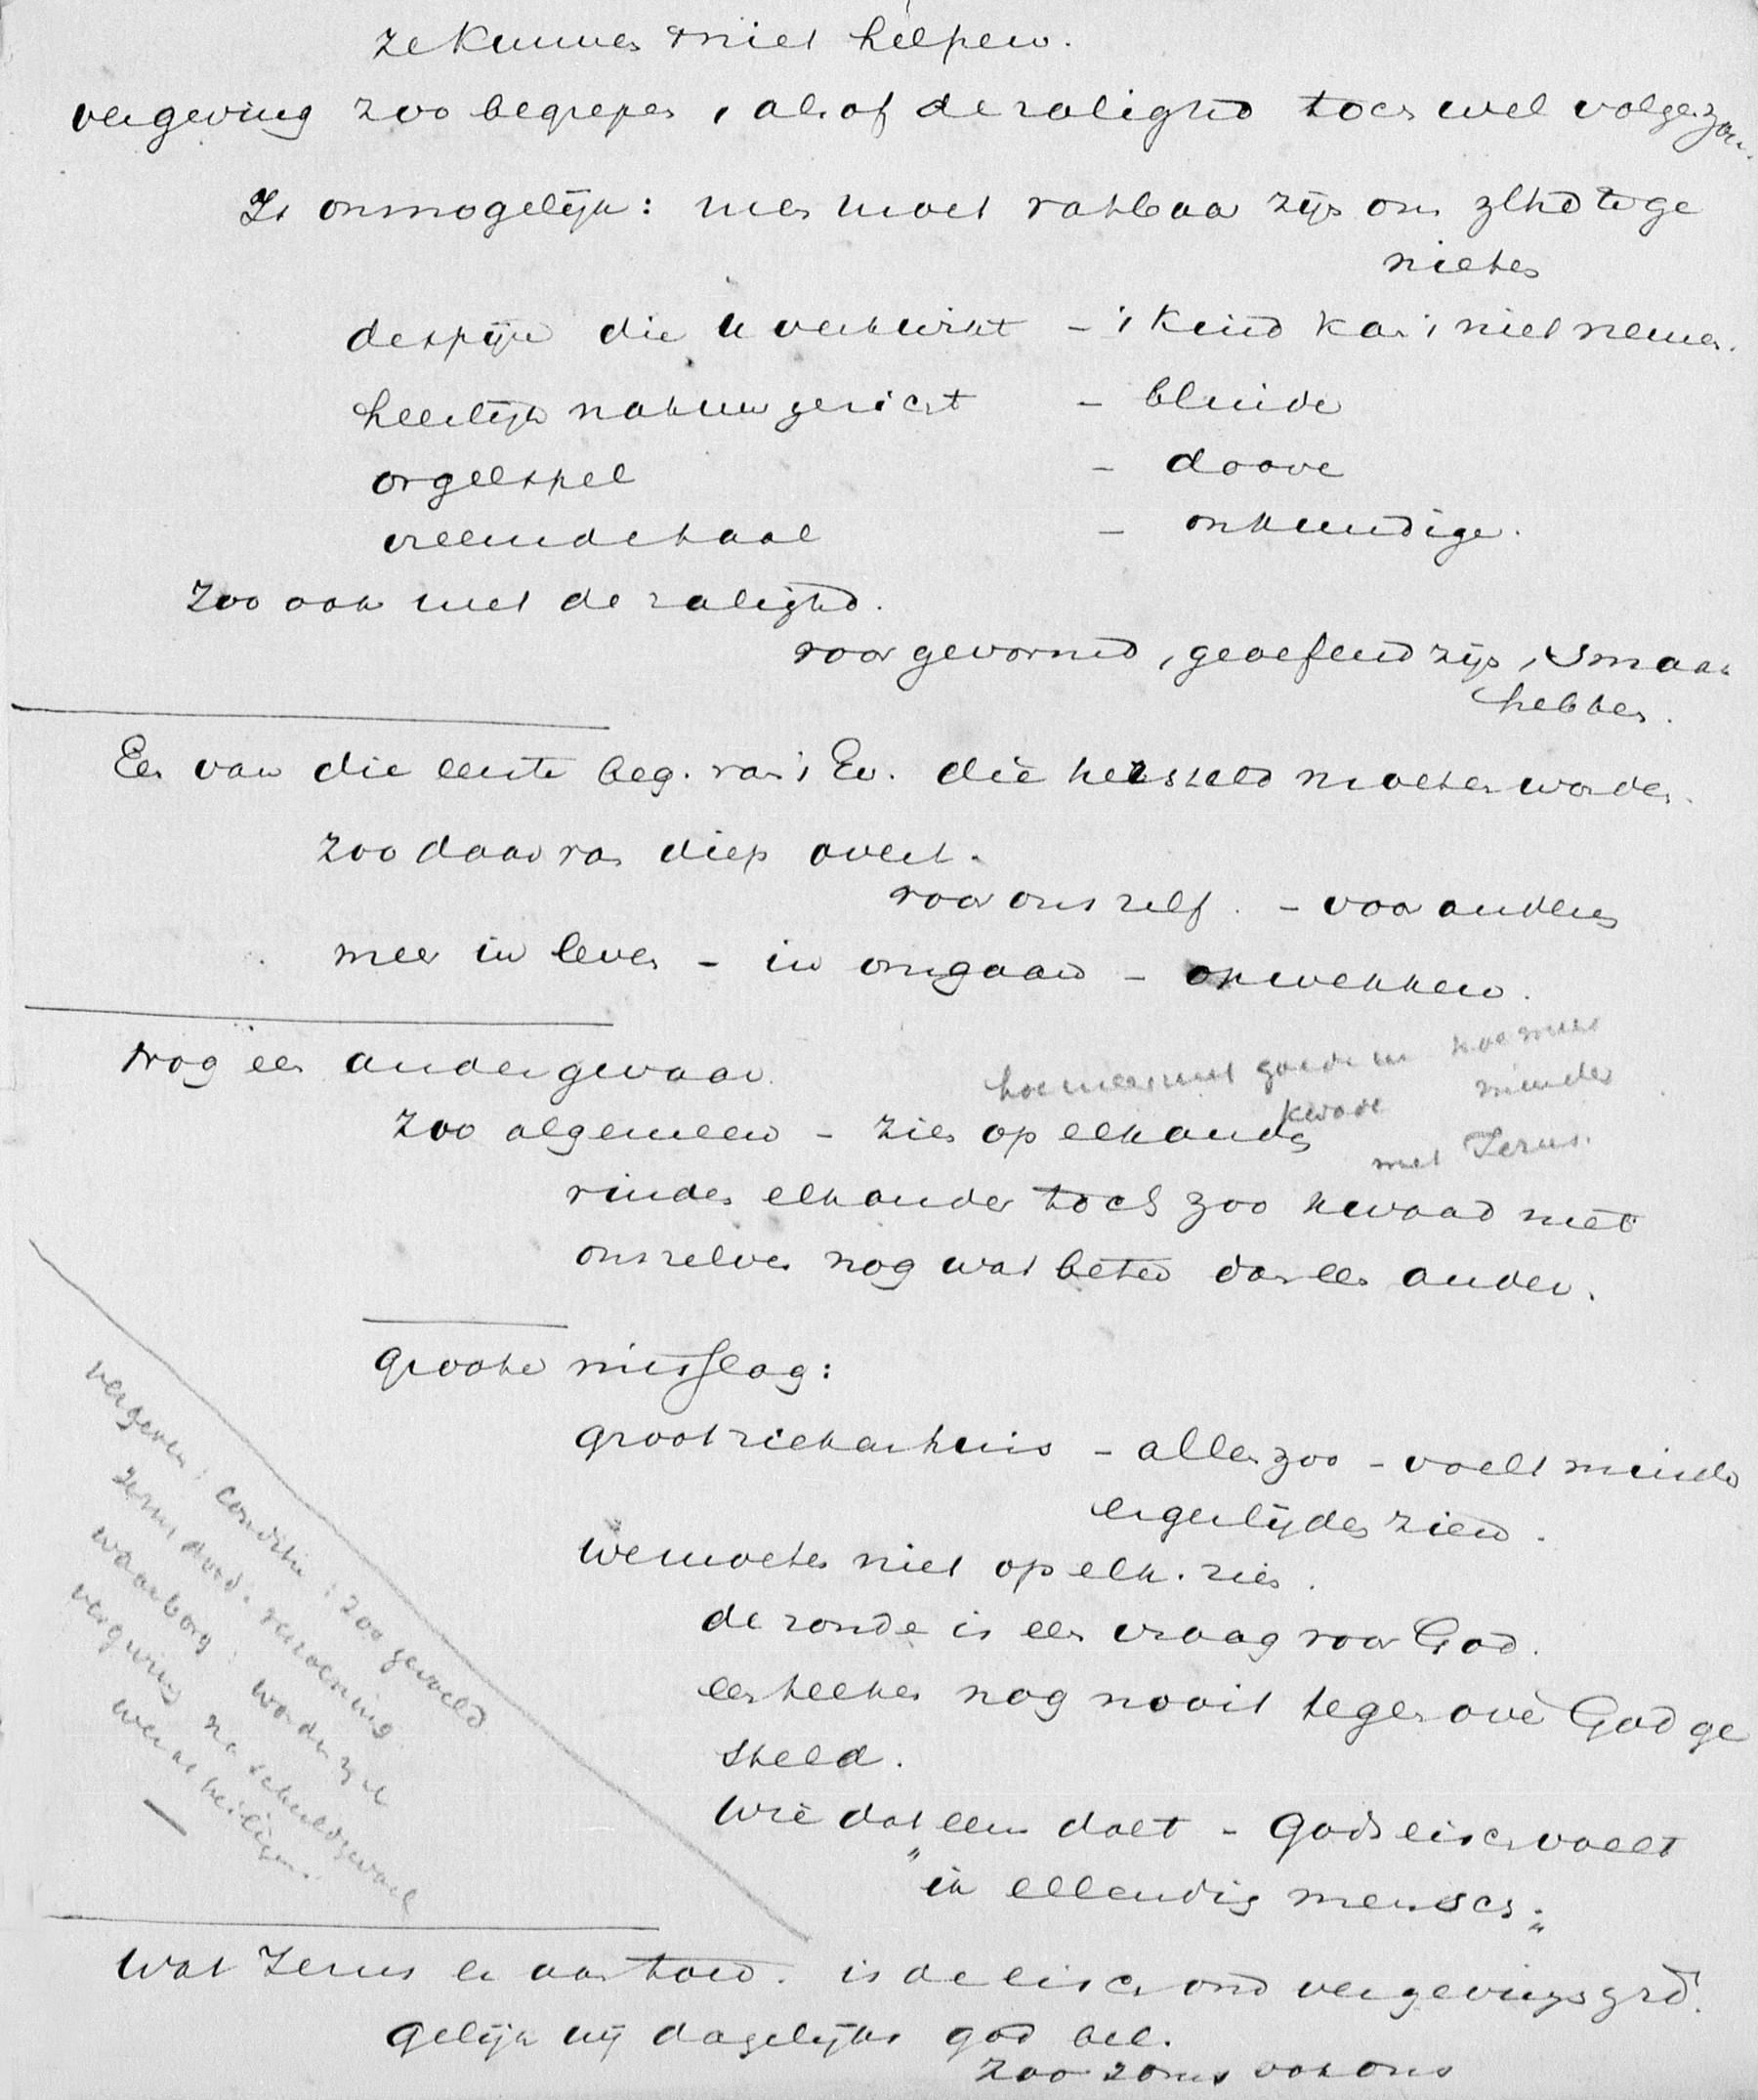 ze kunnen niet helpen.
vergeving zoo begrepen, alsof de zalighd toch wel volgen zou.
Is onmogelijk: men moet vatbaar zijn om zlhd te ge
nieten
de spijs die u verkwikt – 't kind kan 't niet nemen.
heerlijk natuurgezicht – blinde
orgelspel – doove
vreemde taal – onkundige.
Zoo ook met de zalighd.
voor gevormd, geoefend zijn, smaak
hebben.
Een van die eerste beg. van 't Ev. die hersteld moeten worden.
Zoo daarvan diep overt.
voor ons zelf. – voor anderen
meer in leven – in omgaan – opwekken.
Nog een ander gevaar.
hoe meer met goede en hoe meer
kwade minder
met Jezus.
Zoo algemeen – zien op elkander
vinden elkander toch zoo kwaad niet
onszelven nog wat beter dan een ander.
Groote misslag:
groot ziekenhuis – allen zoo – voelt minder
eigen lijden zien.
We moeten niet op elk. zien.
de zonde is een vraag voor God.
een heeten nog nooit tegenover God ge
steld.
Wie dat eens doet – Gods eisch voelt
"ik ellendig mensch;"
vergeven: conditie: zoo gevoeld
Jezus dood. verzoening
waarborg: worden zal
vergeving na schuldgevoel
werkt heiligen.
Wat Jezus er aan toev. is de eisch ond vergevingsgzd.
gelijk wij dagelijks god bel.
Zoo soms ook ons